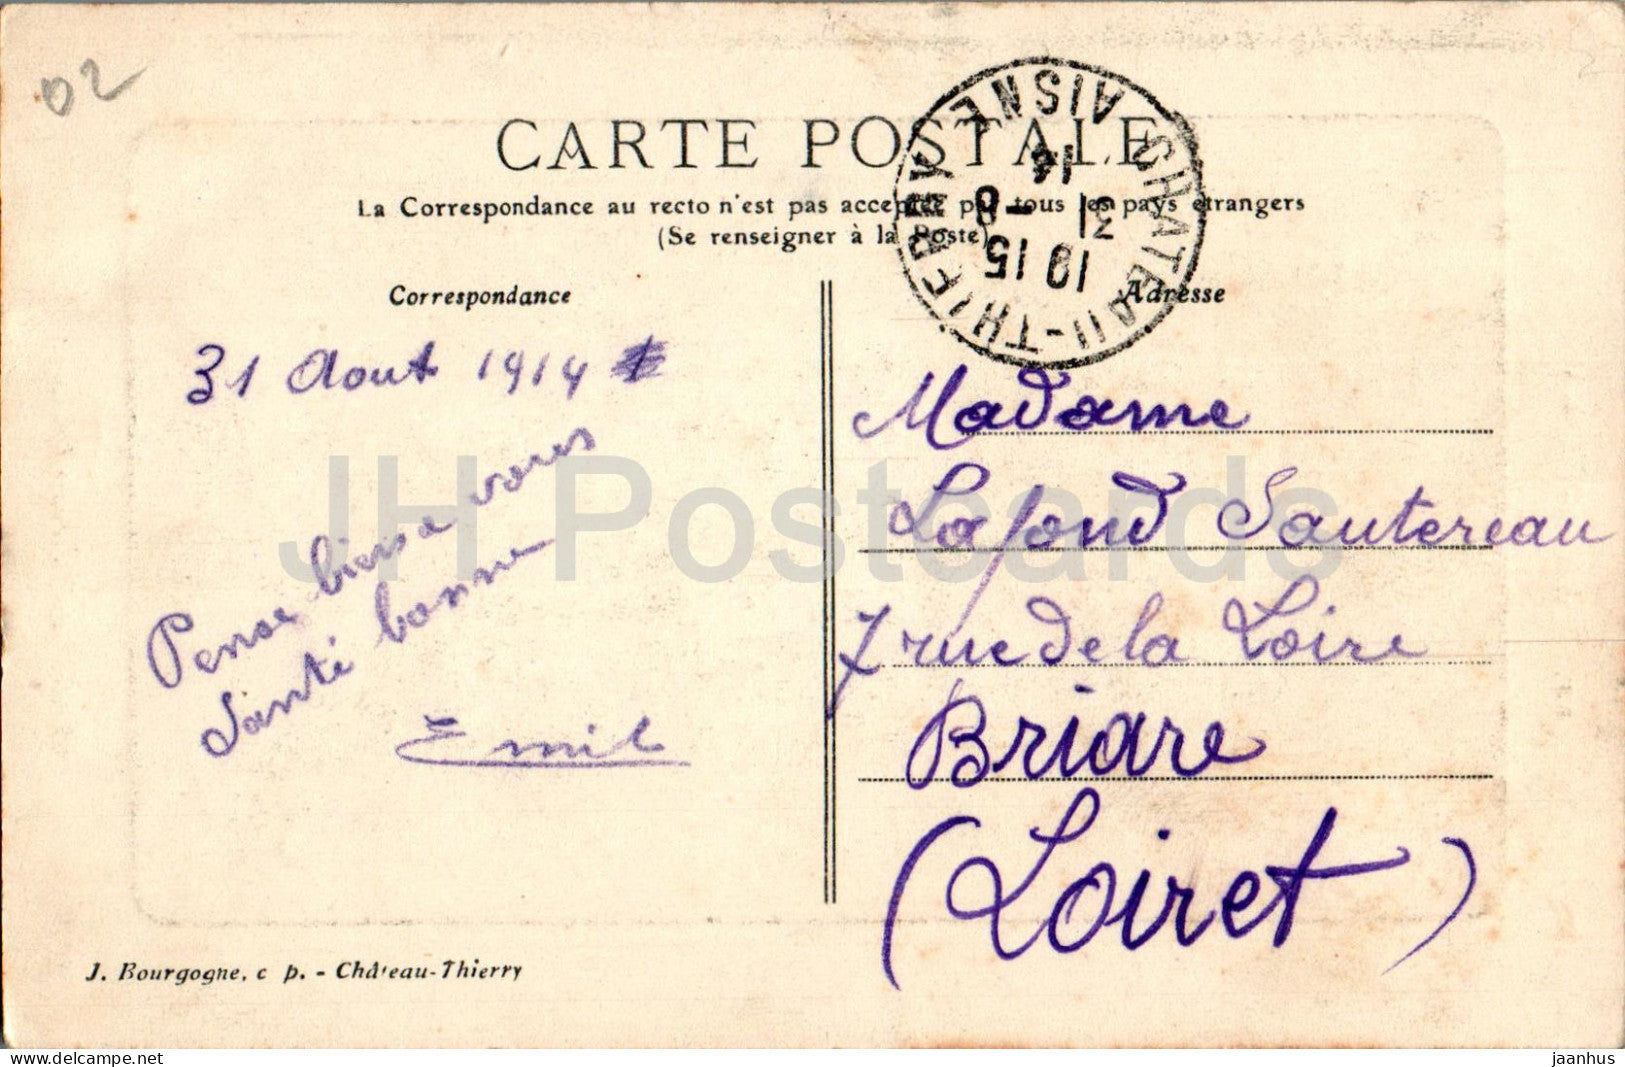 02
CARTE POSTALE
La Correspondance au recto n'est pas acceptée par tous les pays étrangers
(Se renseigner à la Poste)
CHATEAU-THIERRY AISNE
1915
31 - 8
14
Correspondance
31 Aout 1914
Pense bien a vous
Santé bonne
Emile
Adresse
Madame
Lafond Sautereau
7 rue de la Loire
Briare
(Loiret)
J. Bourgogne, c p. - Château-Thierry
JH Postcards
www.delcampe.net
jaanhus